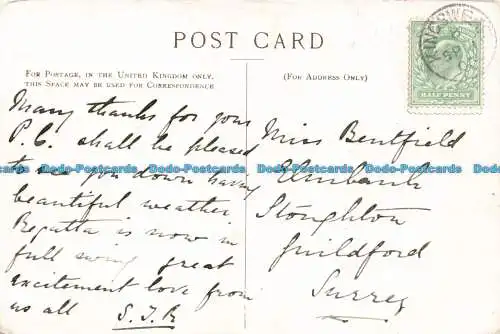 POST CARD
FOR POSTAGE, IN THE UNITED KINGDOM ONLY,
THIS SPACE MAY BE USED FOR CORRESPONDENCE
(FOR ADDRESS ONLY)
HALF PENNY
Many thanks for your
P.C. shall be pleased
to see you down having
beautiful weather
Regatta is now in
full swing great
excitement love from
us all S.J.R
Miss Bentfield
Elmbank
Stoughton
Guildford
Surrey
Dodo-Postcards Dodo-Postcards Dodo-Postcards Dodo-Postcards Dodo-Postcards